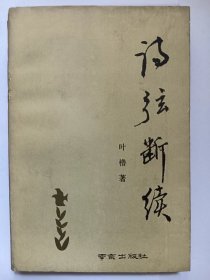 诗弦断续
叶橹著
南京出版社